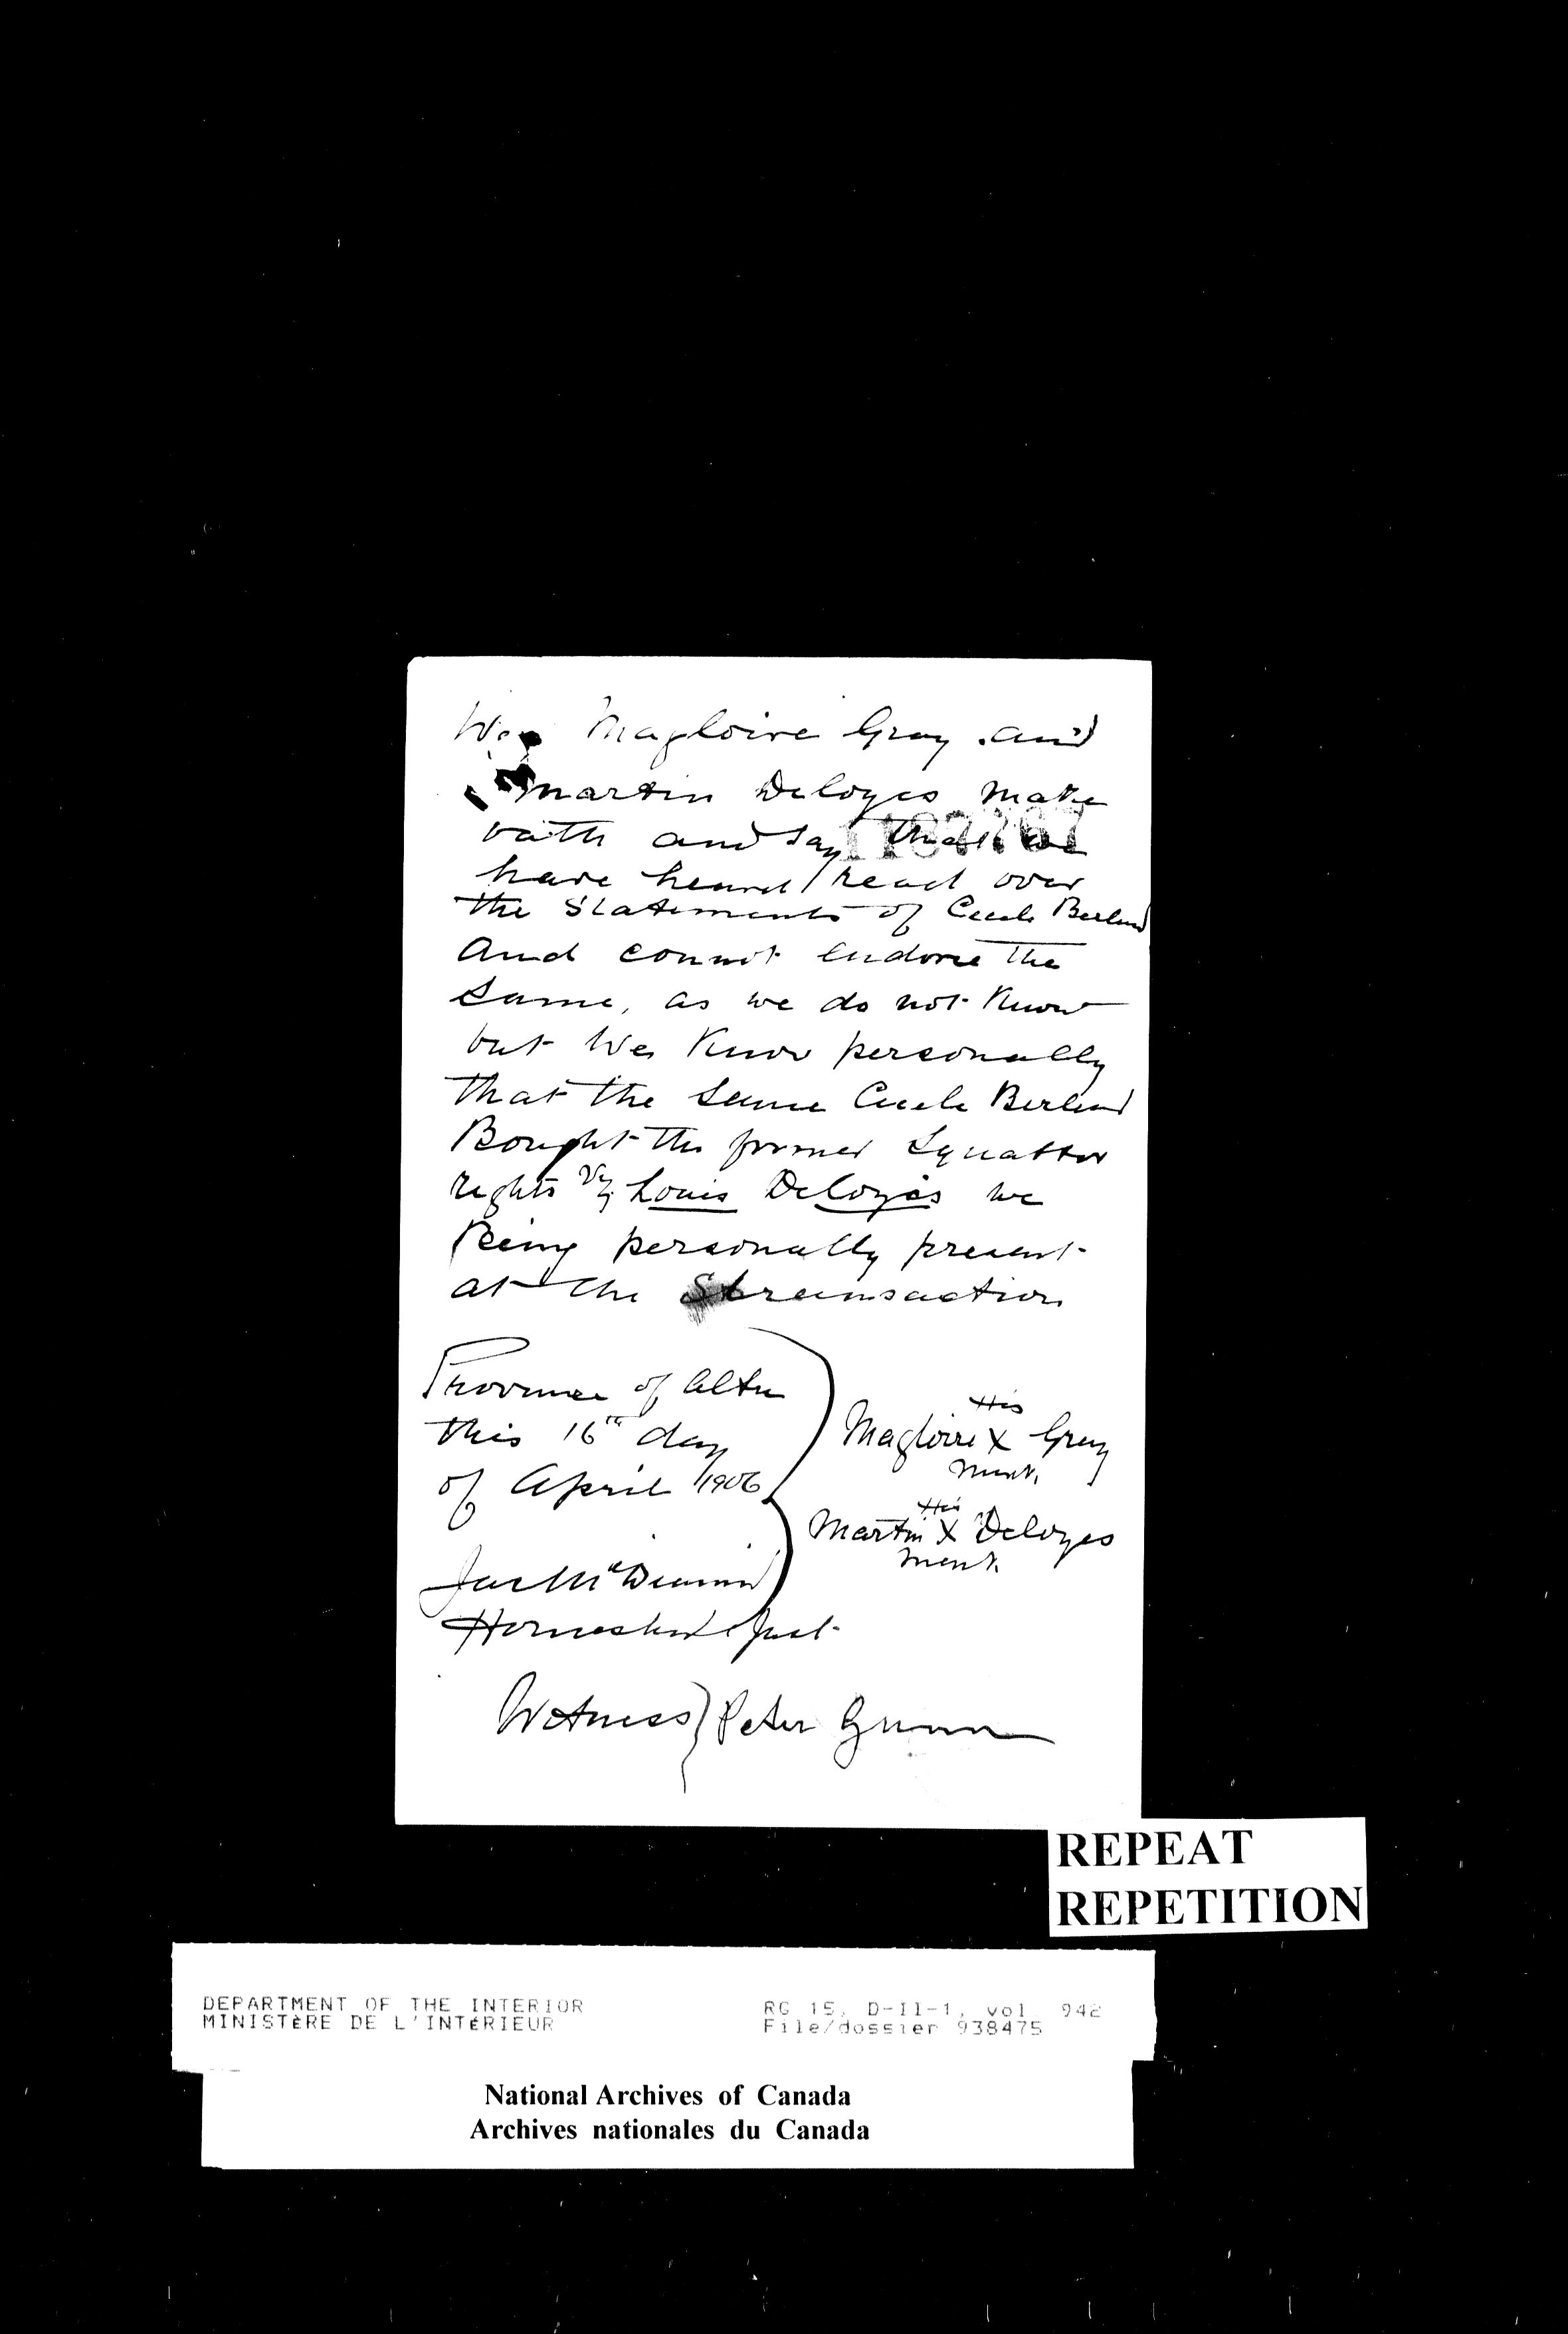 We Magloire Gray and
Martin Deloyes make
oath and say that we
have heard read over
the Statements of Cecele Berland
and connot endorse the
Same, as we do not Know
but We Know personally
that the Same Cecele Berland
Bought the former Squatter
rights of Louis Deloyes we
Being personally present
at the transaction
Province of Alta
this 16th day
of April 1906
His
Magloire X Gray
Mark.
His
Martin X Deloyes
Mark.
Homestead Inst
Witness } Peter Gunn
REPEAT
REPETITION
DEPARTMENT OF THE INTERIOR
MINISTÈRE DE L'INTÉRIEUR
RG 15, D-II-1, vol. 942
File/dossier 938475
National Archives of Canada
Archives nationales du Canada